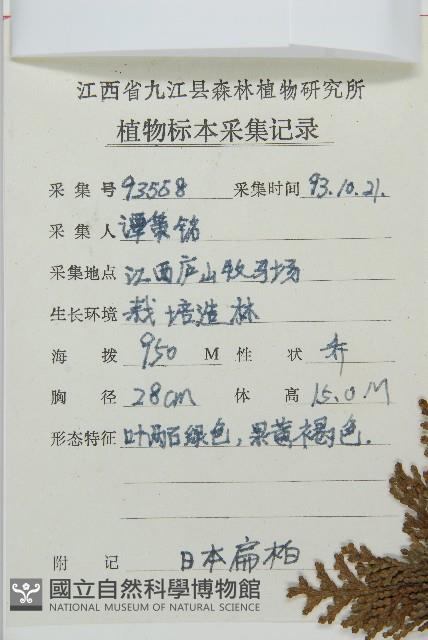 江西省九江县森林植物研究所
植物标本采集记录
采集号 93558 采集时间 93.10.21.
采集人 谭策铭
采集地点 江西庐山牧马场
生长环境 栽培造林
海拨 950 M 性状 乔
胸径 28cm 体高 15.0M
形态特征 叶两面绿色，果黄褐色.
附记 日本扁柏
國立自然科學博物館
NATIONAL MUSEUM OF NATURAL SCIENCE